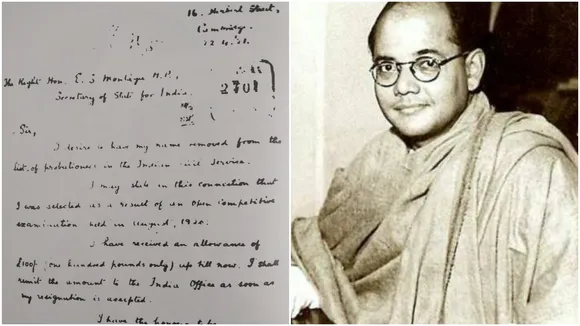 16, Herbert Street,
Cambridge.
22.4.21.
The Right Hon. E. S. Montagu M.P.,
Secretary of State for India.
2701
Sir,
I desire to have my name removed from the
list of probationers in the Indian Civil Service.
I may state in this connection that
I was selected as a result of an open competitive
examination held in August, 1920.
I have received an allowance of
£100/- (one hundred pounds only) up till now. I shall
remit the amount to the India Office as soon as
my resignation is accepted.
I have the honour to be